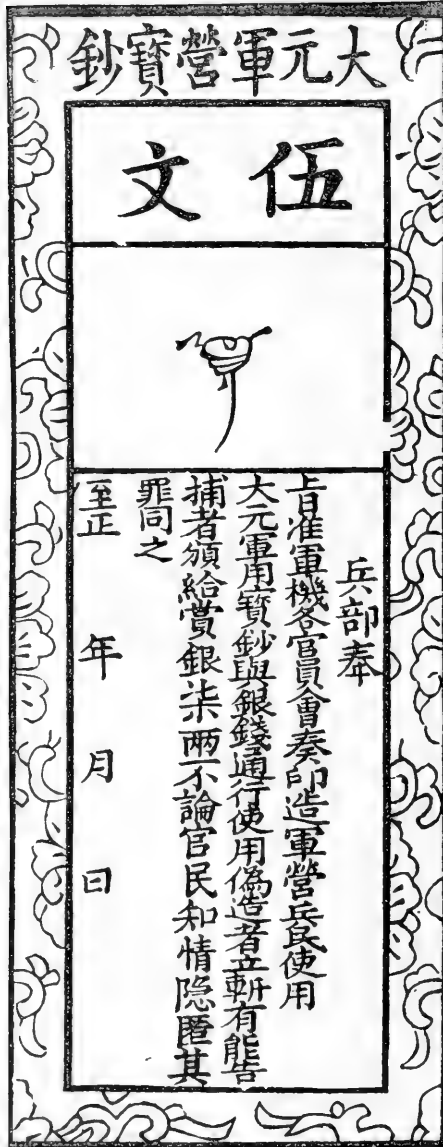 大元軍營寳鈔
伍文
兵部奉
旨准軍機各官員會奏印造軍營兵民使用
大元軍用寳鈔與銀錢通行使用偽造者立斬有能告
捕者頒給賞銀柒兩不論官民知情隐匿其
罪同之
至正 年 月 日